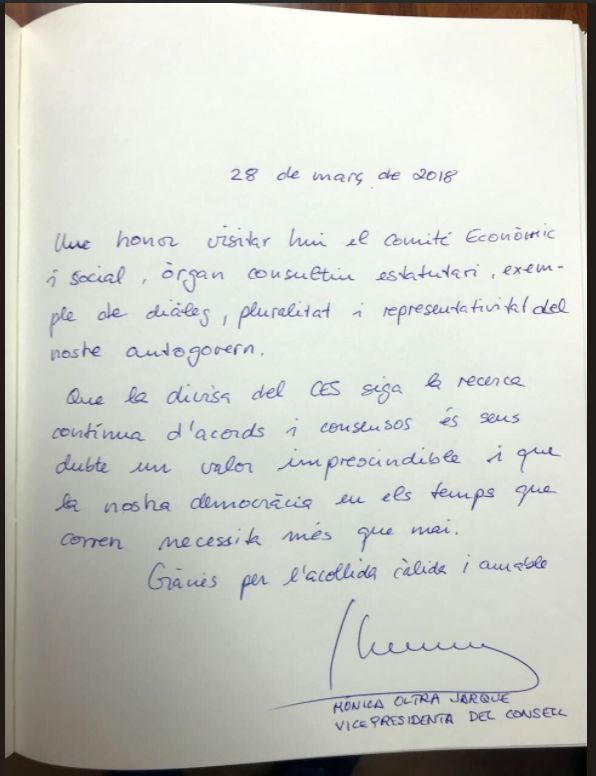 28 de març de 2018
Une honor visitar hui el comité Econòmic
i social, òrgan consultiu estatutari, exem-
ple de diàleg, pluralitat i representativitat del
nostre autogovern.
Que la divisa del CES siga la recerca
contínua d'acords i consensos és sens
dubte un valor imprescindible i que
la nostra democràcia en els temps que
corren necessita més que mai.
Gràcies per l'acollida càlida i amable
MÓNICA OLTRA JARQUE
VICEPRESIDENTA DEL CONSELL